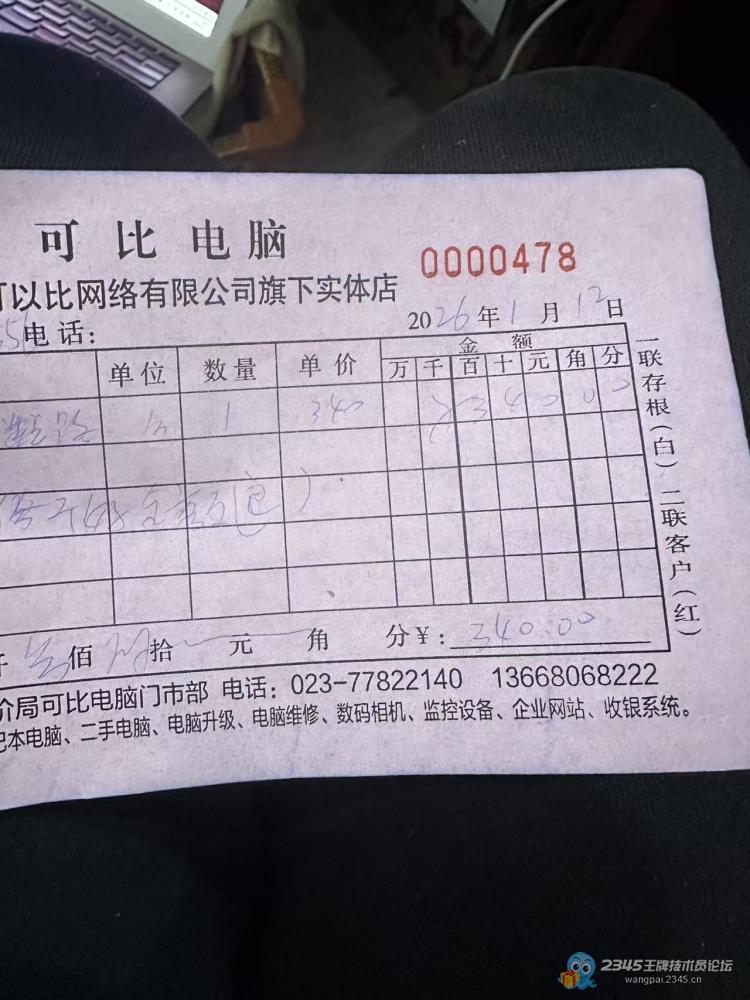 可比电脑
0000478
可以比网络有限公司旗下实体店
电话:
2026年1月12日
单位 数量 单价 金额
万 千 百 十 元 角 分
1 340 ¥ 3 4 0 0 0
佰 拾 元 角 分¥: 340.00
价局可比电脑门市部 电话: 023-77822140 13668068222
记本电脑、二手电脑、电脑升级、电脑维修、数码相机、监控设备、企业网站、收银系统。
一联存根(白) 二联客户(红)
2345王牌技术员论坛
wangpai.2345.cn